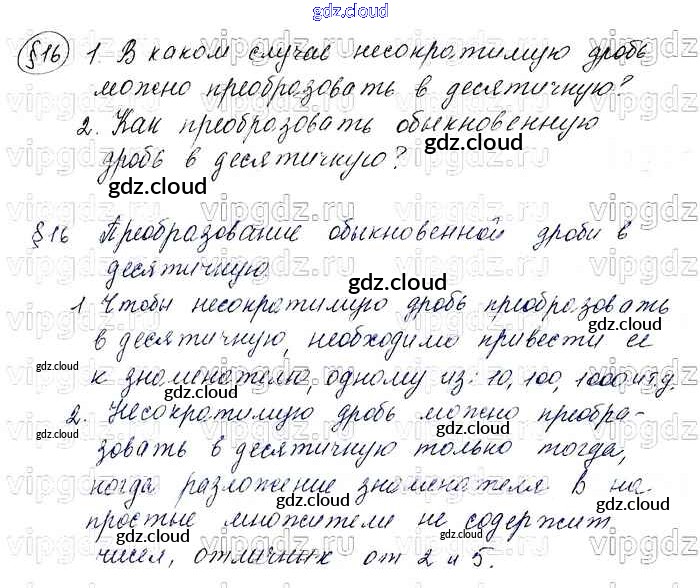 gdz.cloud
§16 1. В каком случае несократимую дробь
можно преобразовать в десятичную?
2. Как преобразовать обыкновенную
дробь в десятичную?
gdz.cloud
gdz.cloud
§16 Преобразование обыкновенной дроби в
десятичную
gdz.cloud
1 Чтобы несократимую дробь преобразовать
gdz.cloud
в десятичную, необходимо привести ее
gdz.cloud
к знаменателю, одному из: 10, 100, 1000 и т.д.
gdz.cloud
2. Несократимую дробь можно преобра-
gdz.cloud
зовать в десятичную только тогда,
когда разложение знаменателя в на
gdz.cloud
простые множители не содержит
gdz.cloud
чисел, отличных от 2 и 5.
vipgdz.ru